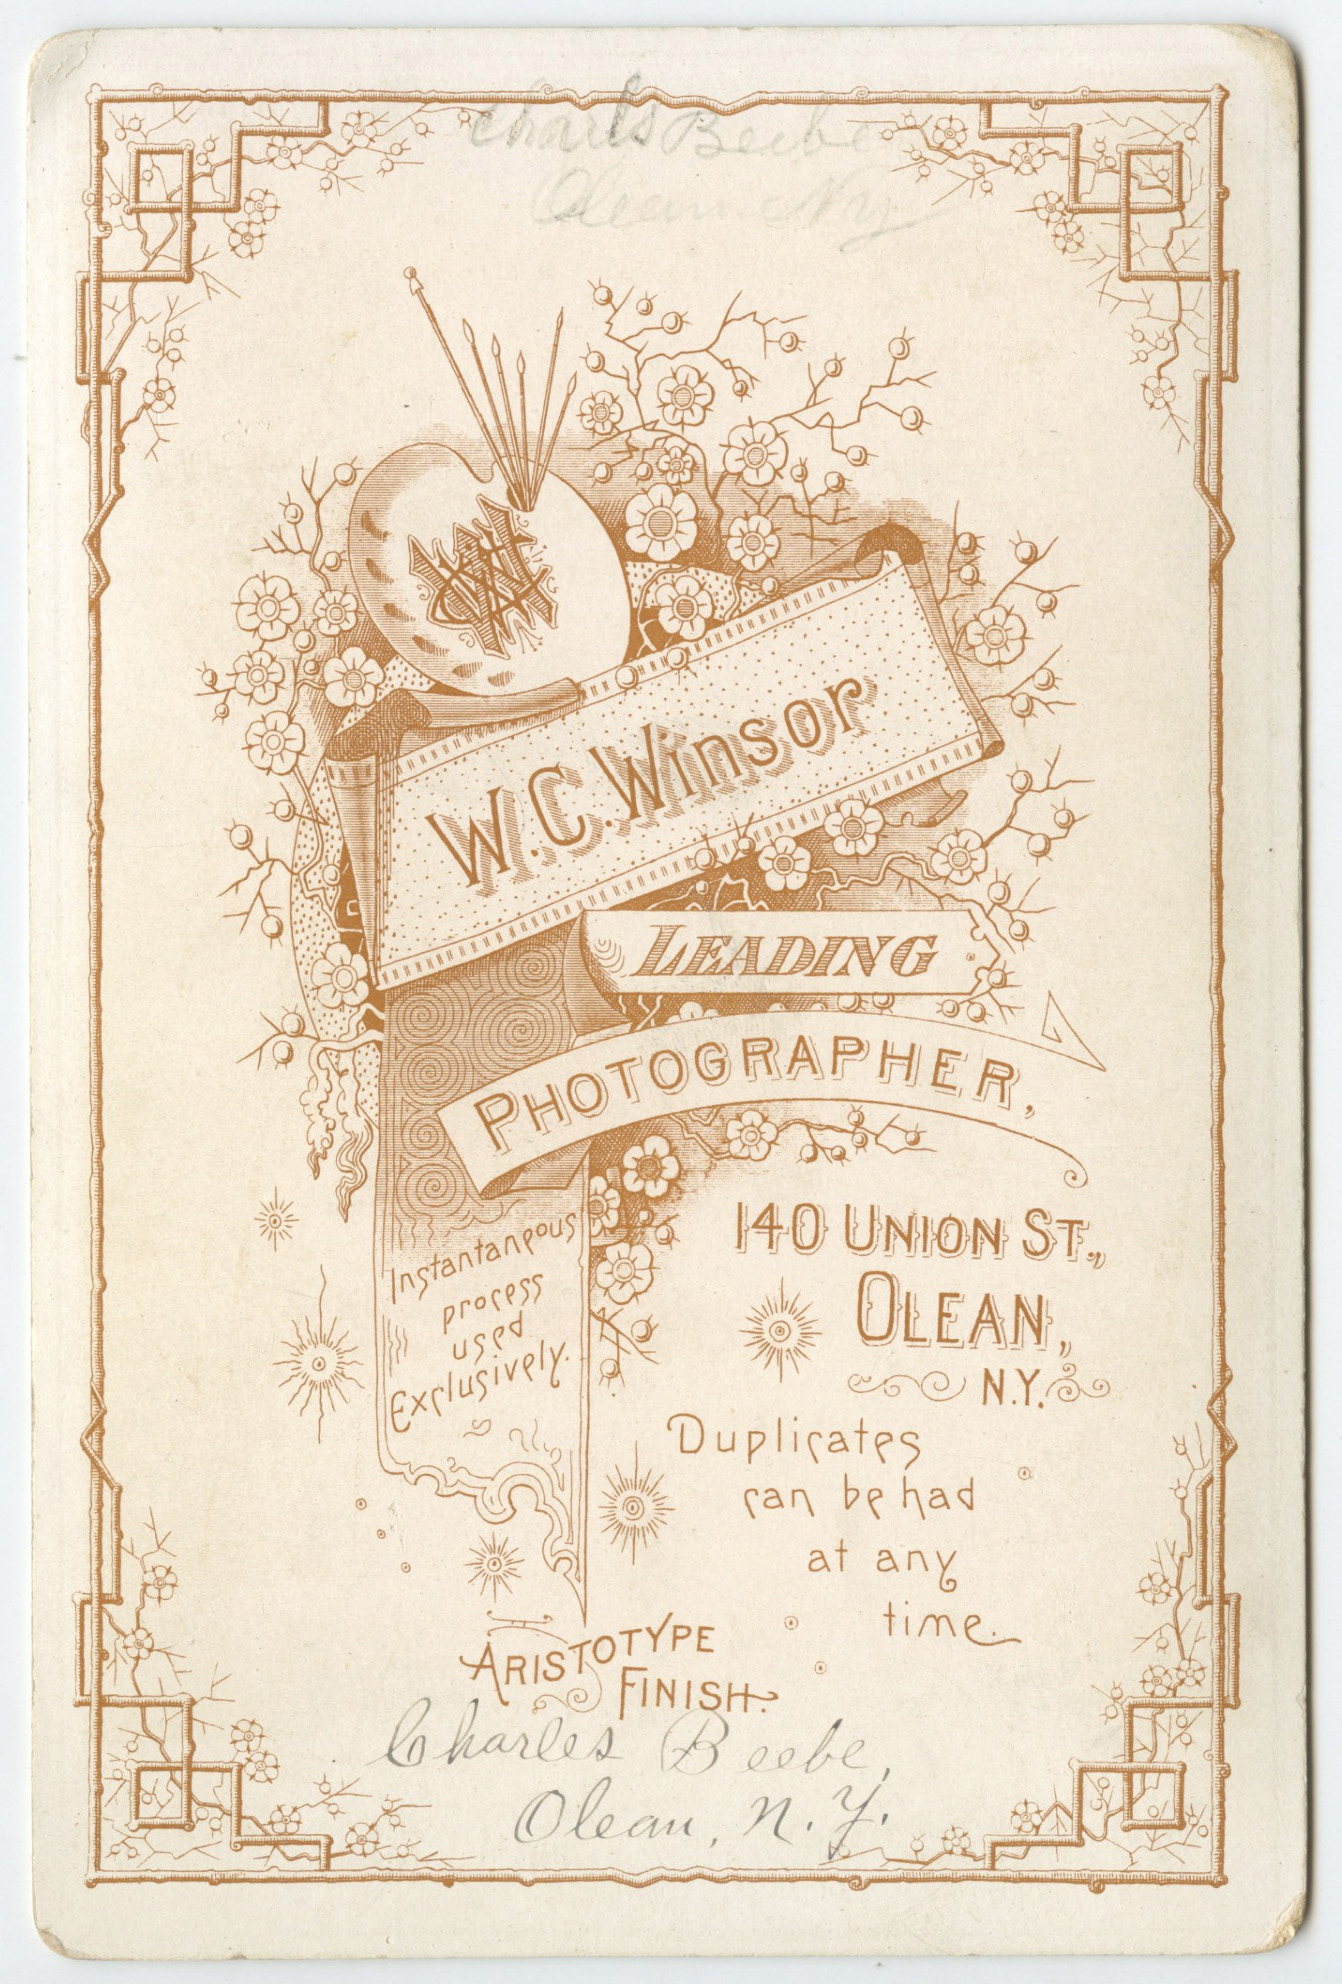 Charls Beebe
Olean Ny
W.C. Winsor
LEADING
PHOTOGRAPHER,
Instantaneous
process
used
Exclusively.
140 UNION ST.,
OLEAN,
N.Y.
Duplicates
can be had
at any
time.
ARISTOTYPE
FINISH.
Charles Beebe,
Olean, N. Y.